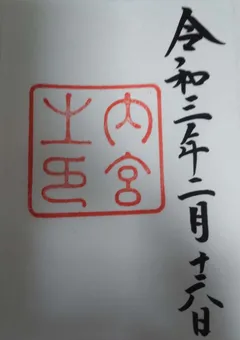 令和三年二月十六日
内宮
之印